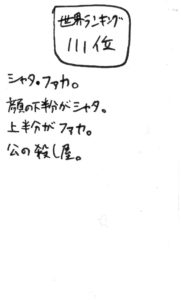 世界ランキング
111位
シャタ・ファカ。
顔の下半分がシャタ。
上半分がファカ。
公の殺し屋。